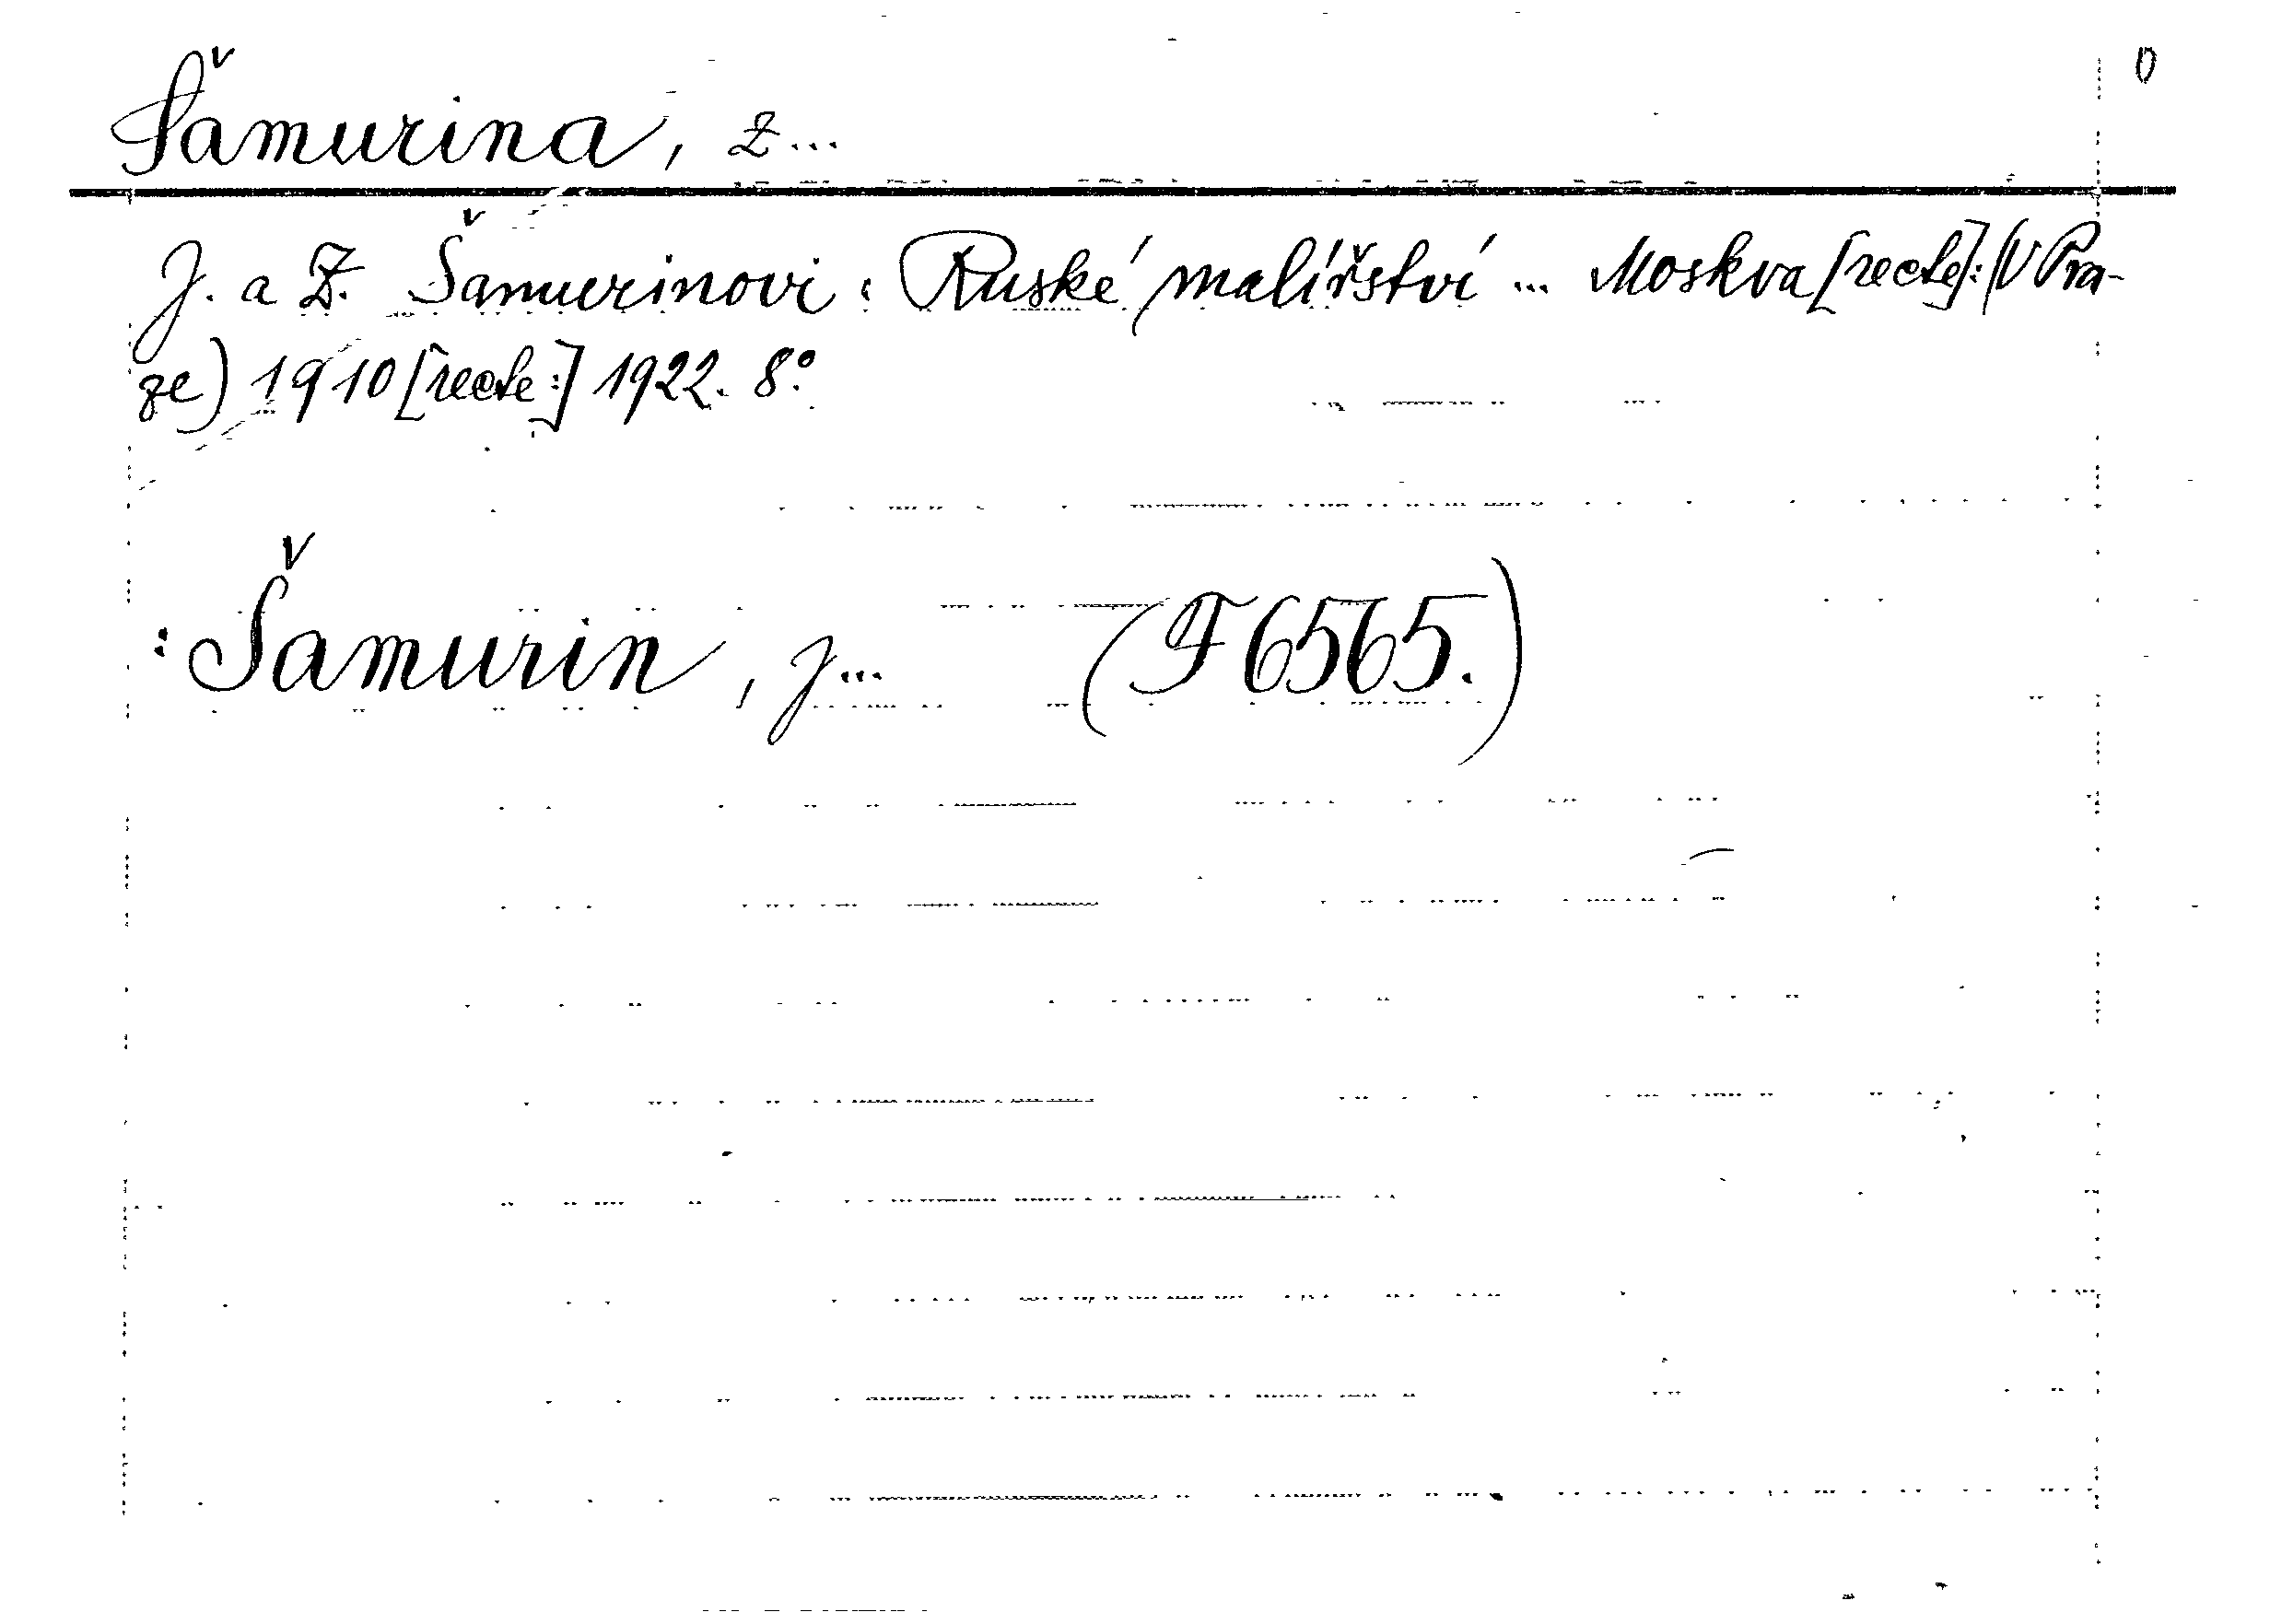 0
Šamurina, Z...
J. a Z. Šamurinovi: Ruské malířství ... Moskva [recte]: (V Pra-
ze) 1910 [recte:] 1922. 8°.
: Šamurin, J... (F 6565.)